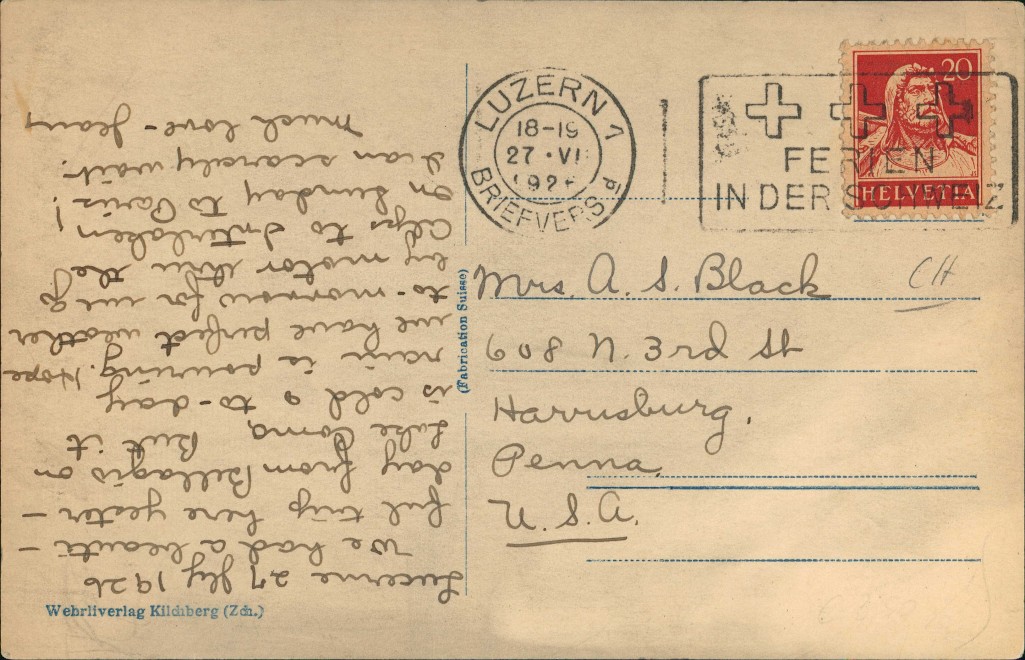 Lucerne 27 Jly 1926
We had a beauti-
ful trip here yester-
day from Bellagio on
Lake Como, But it
is cold & to-day
rain is pouring. Hope
we have perfect weather
to-morrow for we go
by motor thru the
Alps to Interlaken!
On Sunday to Paris.
I can scarcely wait.
much love - Jean
Wehrliverlag Kilchberg (Zch.)
(Fabrication Suisse)
LUZERN 1
18-19
27 · VI
1926
BRIEFVERSD
FERIEN
IN DER SCHWEIZ
20
HELVETIA
CH
Mrs. A. S. Black
608 N. 3rd St
Harrisburg,
Penna.
U.S.A.